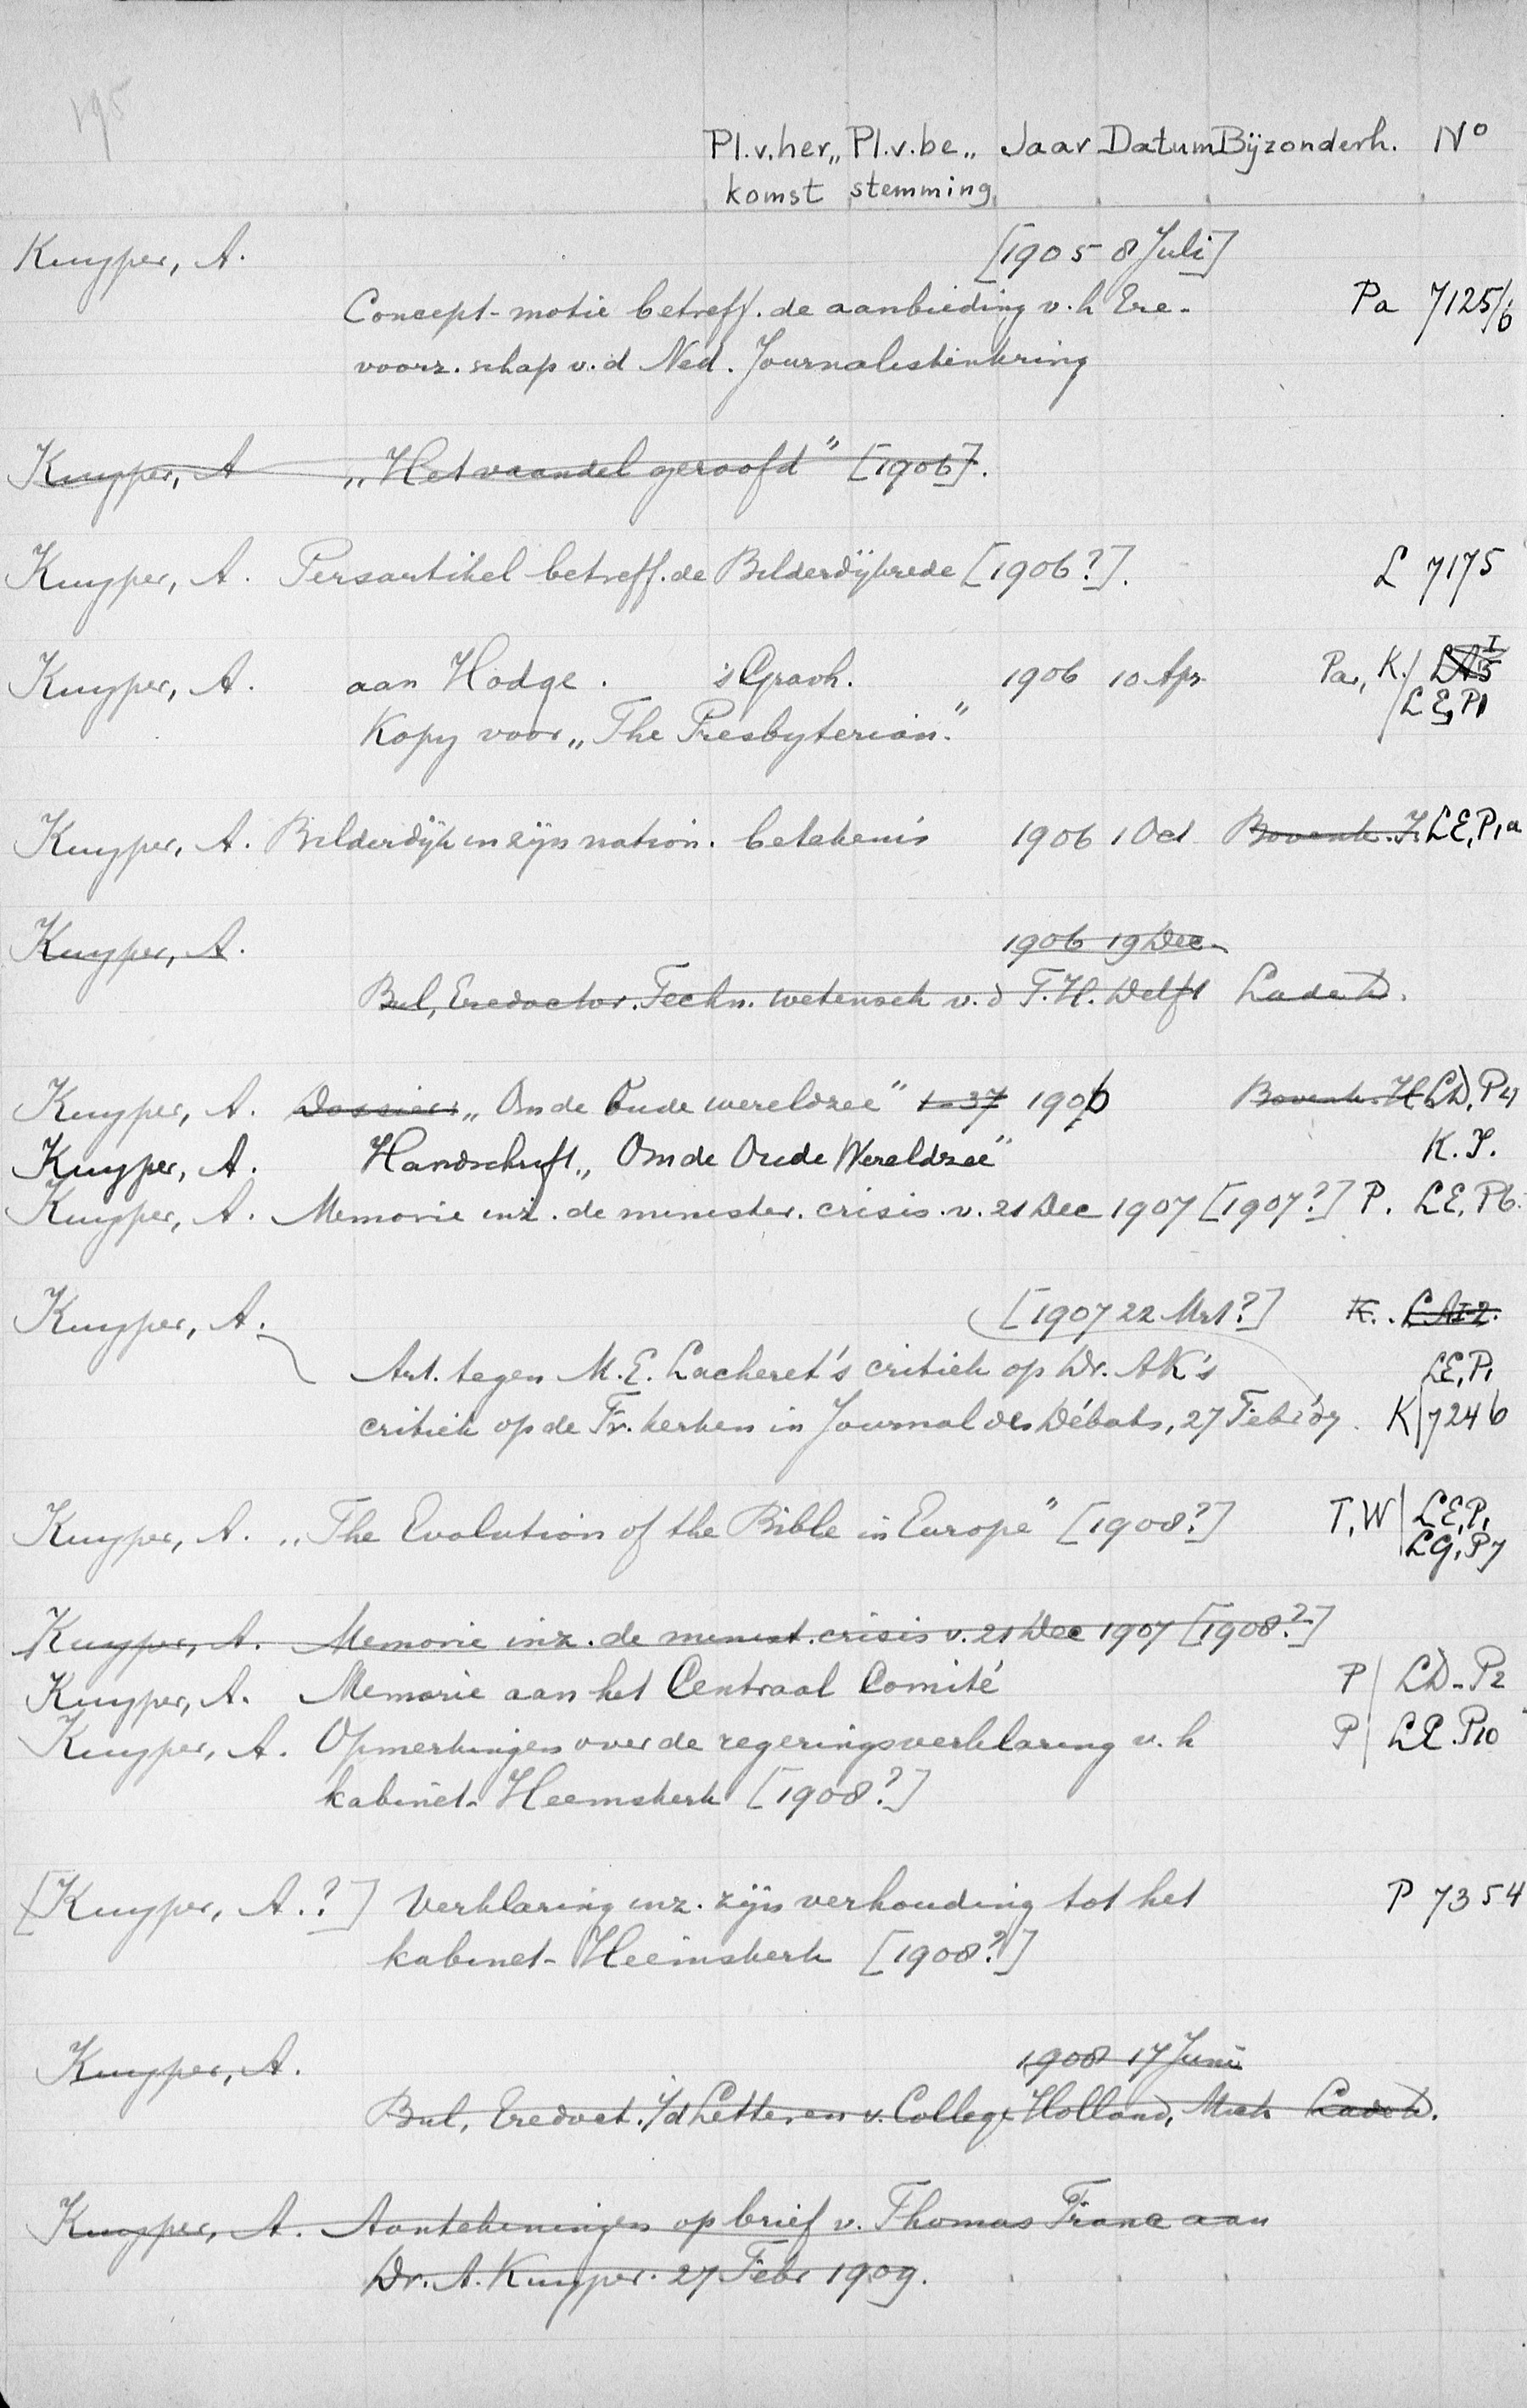 195
Pl.v.her„ Pl.v.be„ Jaar Datum Bijzonderh. No
komst stemming
Kuyper, A. [1905 8 Juli]
Concept-motie betreff. de aanbieding v.h Ere- Pa 7125/6
voorz.schap v.d Ned. Journalistenkring
Kuyper, A „Het vaandel geroofd" [1906].
Kuyper, A. Persartikel betreff. de Bilderdijkrede [1906?]. L 7175
Kuyper, A. aan Hodge. 's Gravh. 1906 10 Apr Pa, K. LA5 I
LE, P1
Kopy voor „The Presbyterian."
Kuyper, A. Bilderdijk in zijn nation. betekenis 1906 1 Oct Bovenk. I. LE, P1a
Kuyper, A. 1906 19 Dec.
Bul, Eredoctor. Techn. wetensch v.d T.H. Delft Lade D.
Kuyper, A. Dossier „Om de Oude wereldzee" 1-37 1906 Bovenk. H LD, P4
Kuyper, A. Handschrift „Om de Oude Wereldzee" K.I.
Kuyper, A. Memorie inz. de minister. crisis v. 21 Dec 1907 [1907?] P. LE, P6.
Kuyper, A. [1907 22 Mrt?] K. LAI-2.
Art. tegen M.E. Lacheret's critiek op Dr. AK's LE, P1
critiek op de Fr. kerken in Journal des Débats, 27 Feb '07. K 7246
Kuyper, A. „The Evolution of the Bible in Europe" [1908?] T, W LE, P1
LG, P7
Kuyper, A. Memorie inz. de minist. crisis v. 21 Dec 1907 [1908?]
Kuyper, A. Memorie aan het Centraal Comité P LD-P2
Kuyper, A. Opmerkingen over de regeringsverklaring v.h P LE.P10
kabinet-Heemskerk [1908?]
[Kuyper, A.?] Verklaring inz. zijn verhouding tot het P 7354
kabinet-Heemskerk [1908?]
Kuyper, A. 1908 17 Juni
Bul, Eredoct. i/d Letteren v. College Holland, Mich Lade D.
Kuyper, A. Aantekeningen op brief v. Thomas Franc aan
Dr. A. Kuyper. 27 Febr 1909.